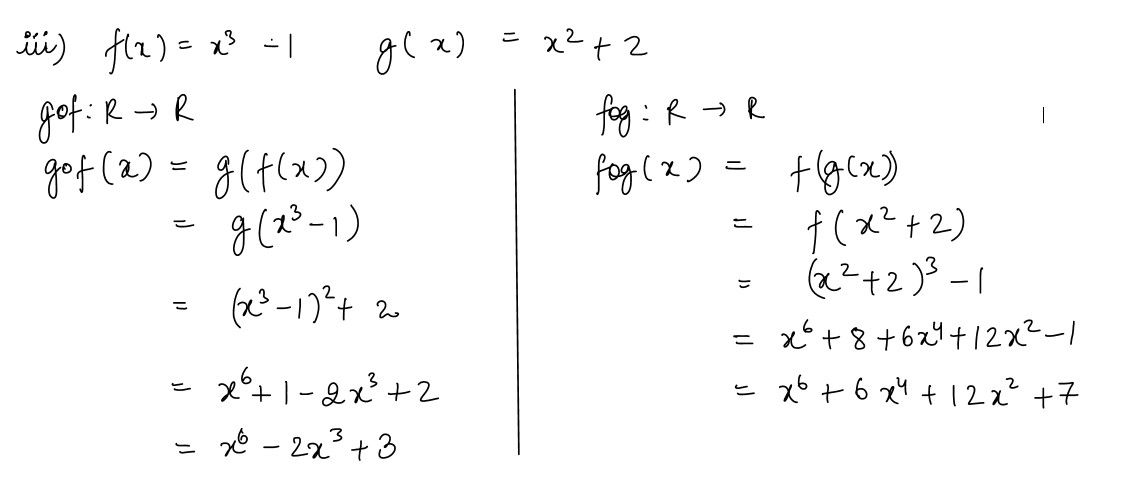 iii) f(x) = x³ - 1 g(x) = x² + 2
gof : R → R
gof(x) = g(f(x))
= g(x³ - 1)
= (x³ - 1)² + 2
= x⁶ + 1 - 2x³ + 2
= x⁶ - 2x³ + 3
fog : R → R
fog(x) = f(g(x))
= f(x² + 2)
= (x² + 2)³ - 1
= x⁶ + 8 + 6x⁴ + 12x² - 1
= x⁶ + 6x⁴ + 12x² + 7